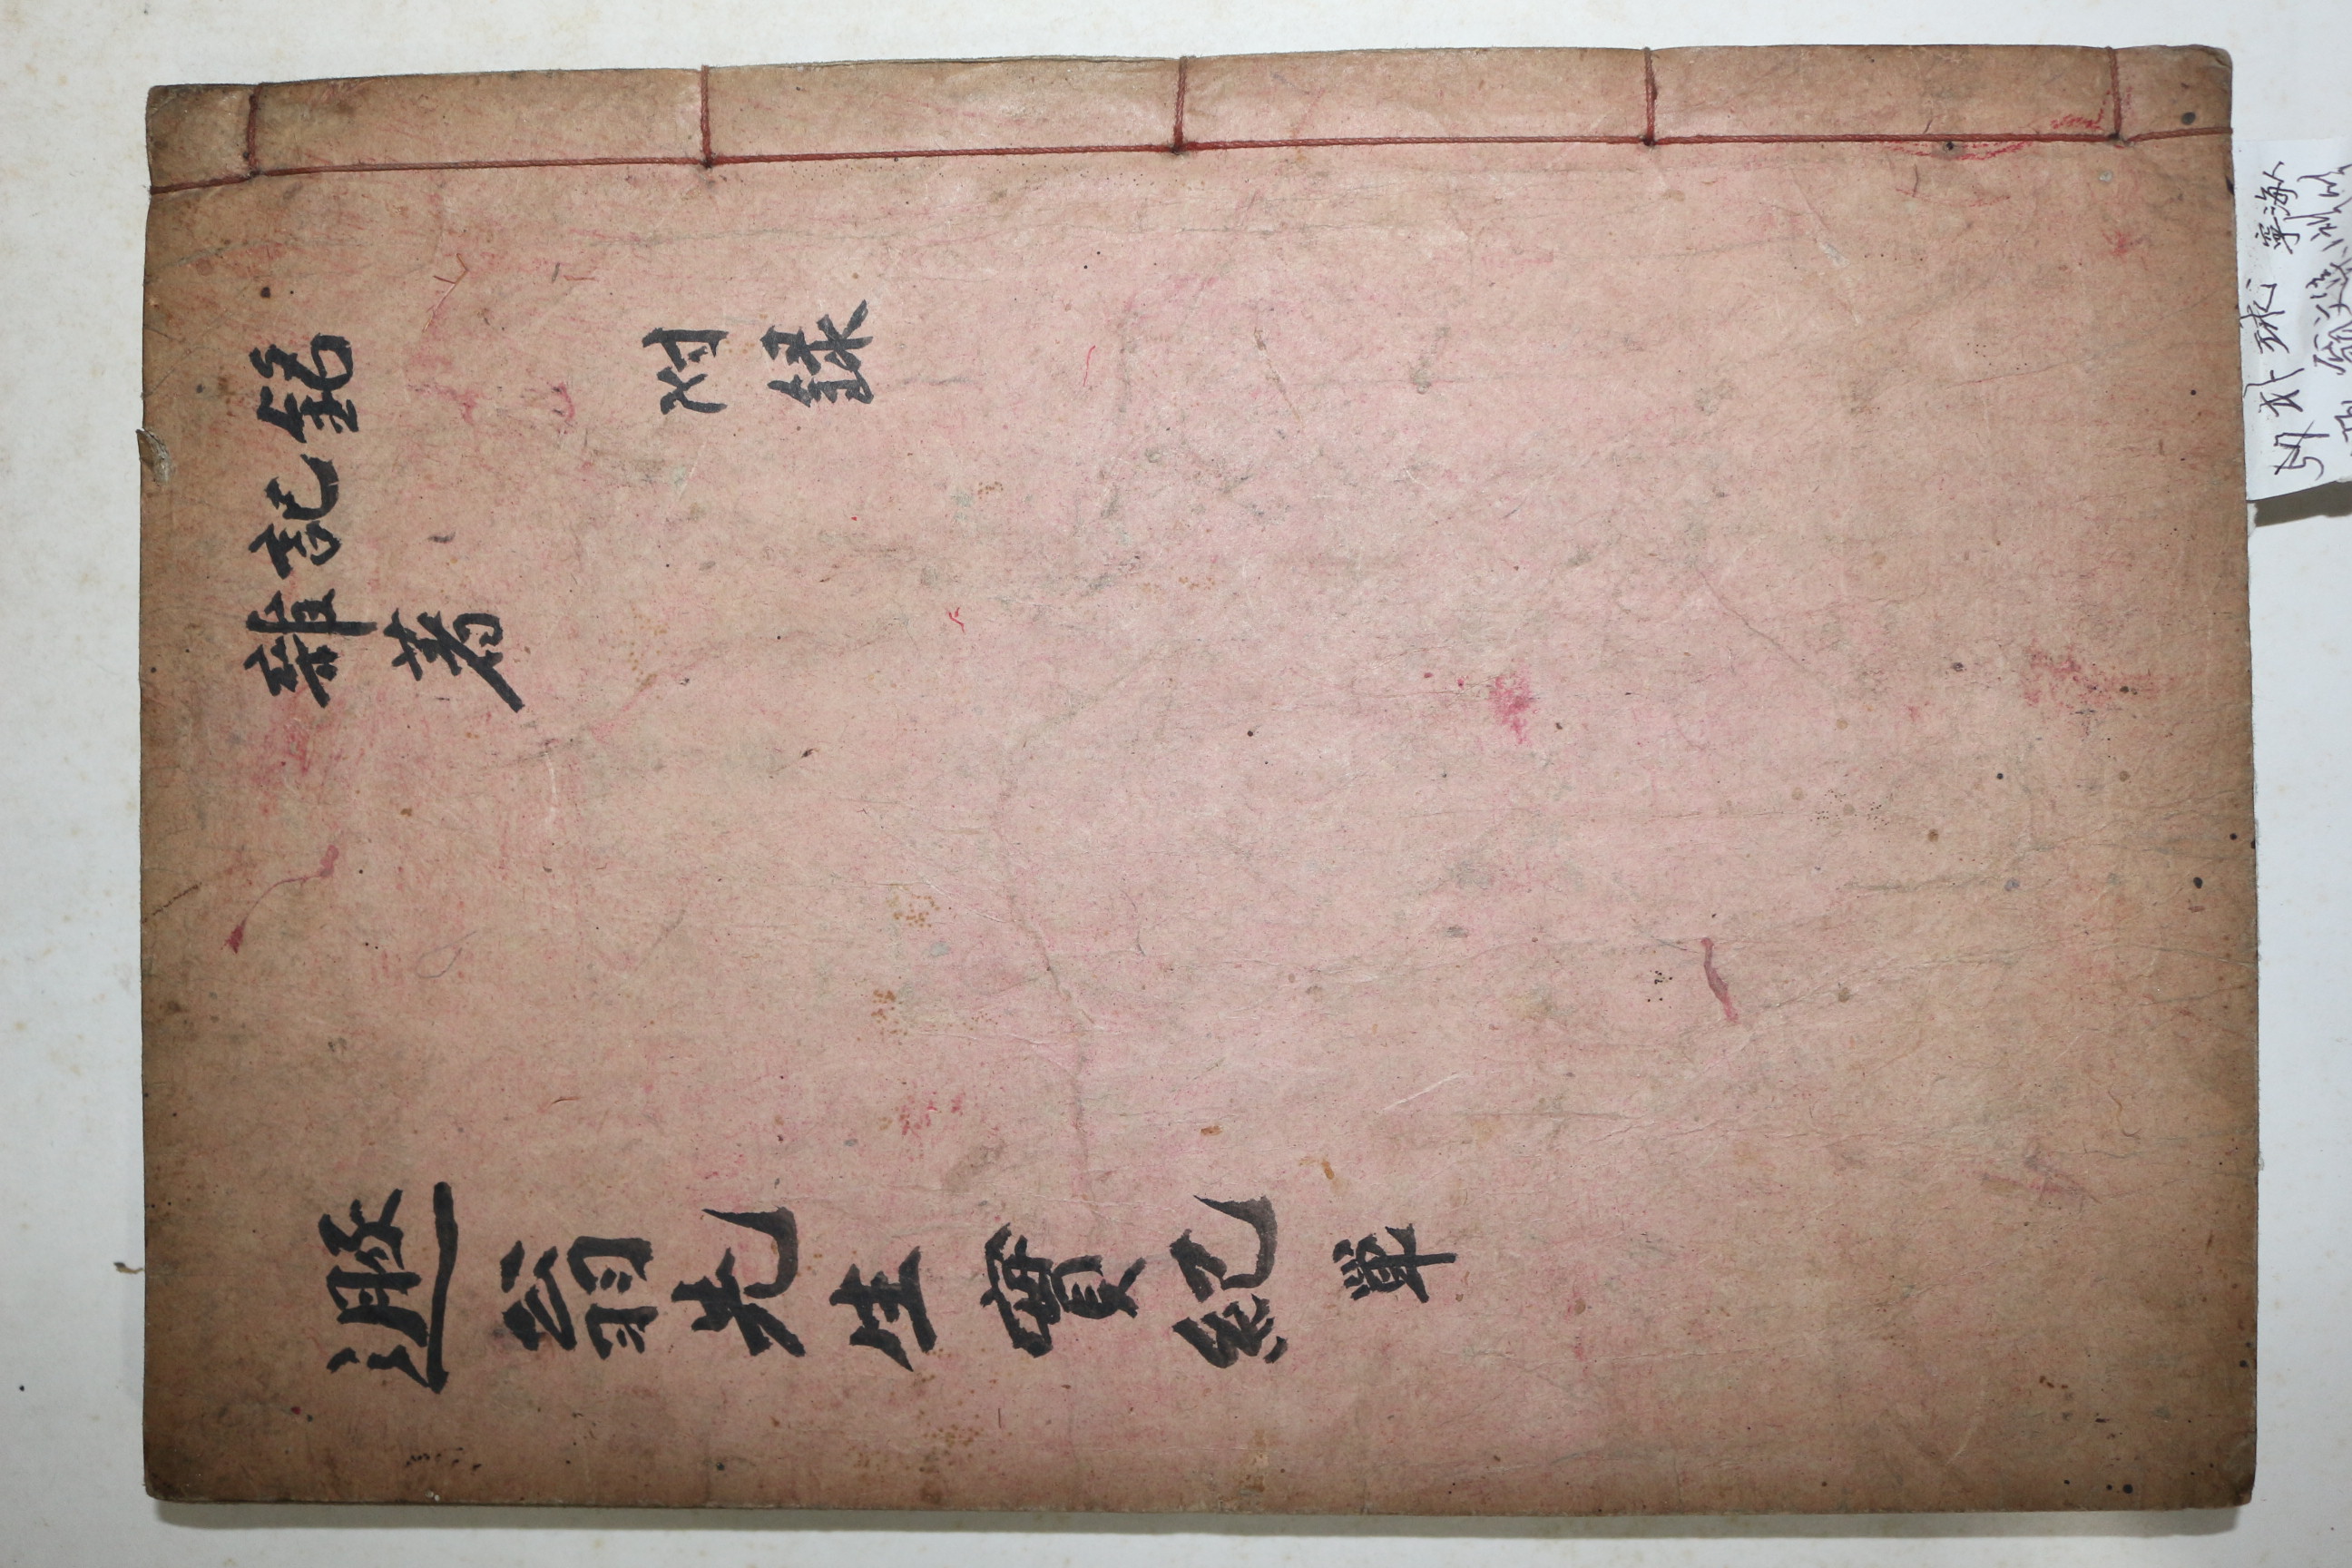 銘
附録
記
雜著
遯翁先生實紀 單
57 朴球 寧海人
翁文集